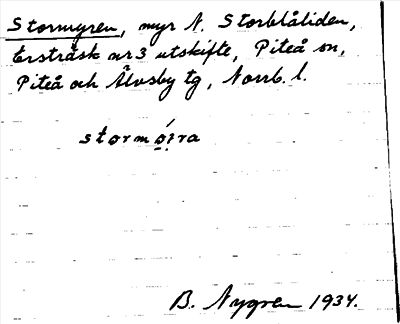 Stormyren, myr N. Storblåliden,
Ersträsk nr 3 utskifte, Piteå sn,
Piteå och Älvsby tg, Norrb. l.
B. Nygren 1934.